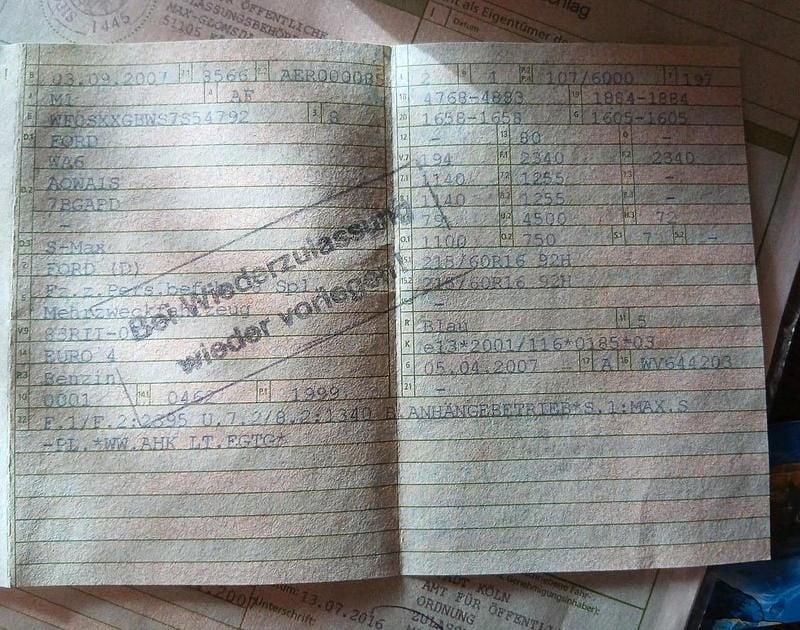 ÖFFENTLICHE
MAX-GLONSD
51105 K
nt als Eigentümer de
Datum
chlag
B 03.09.2007 2.1 8566 2.2 AER000085
J M1 4 AF
E WF0SXXGBWS7S54792 3 8
D.1 FORD
WA6
D.2 AOWA1S
7BGAPD
-
D.3 S-Max
2 FORD (D)
5 Fz.z.Pers.bef. Spl.
Mehrzweckfahrzeug
V.9 83RII-
14 EURO 4
P.3 Benzin
10 0001 14.1 0462 P.1 1999
22 F.1/F.2:2395 U.7.2/8.2:1340 B.ANHÄNGEBETRIEB*S.1:MAX.S
-PL.*WW.AHK LT.EGTG*
L 2 9 1 107/6000 T 197
18 4768-4883 19 1884-1884
20 1658-1658 G 1605-1605
12 - 13 80 Q -
V.7 194 F.1 2340 F.2 2340
7.1 1140 7.2 1255 7.3 -
8.1 1140 8.2 1255 8.3 -
U.1 79 U.2 4500 U.3 72
O.1 1100 O.2 750 S.1 7 S.2 -
15.1 215/60R16 92H
15.2 215/60R16 92H
-
R Blau 11 5
K e13*2001/116*0185*03
6 05.04.2007 17 A 16 WV644203
21 -
Bei Wiederzulassung
wieder vorlegen!
Datum: 13.07.2016
Unterschrift:
STADT KÖLN
AMT FÜR ÖFFENTL
ORDNUNG